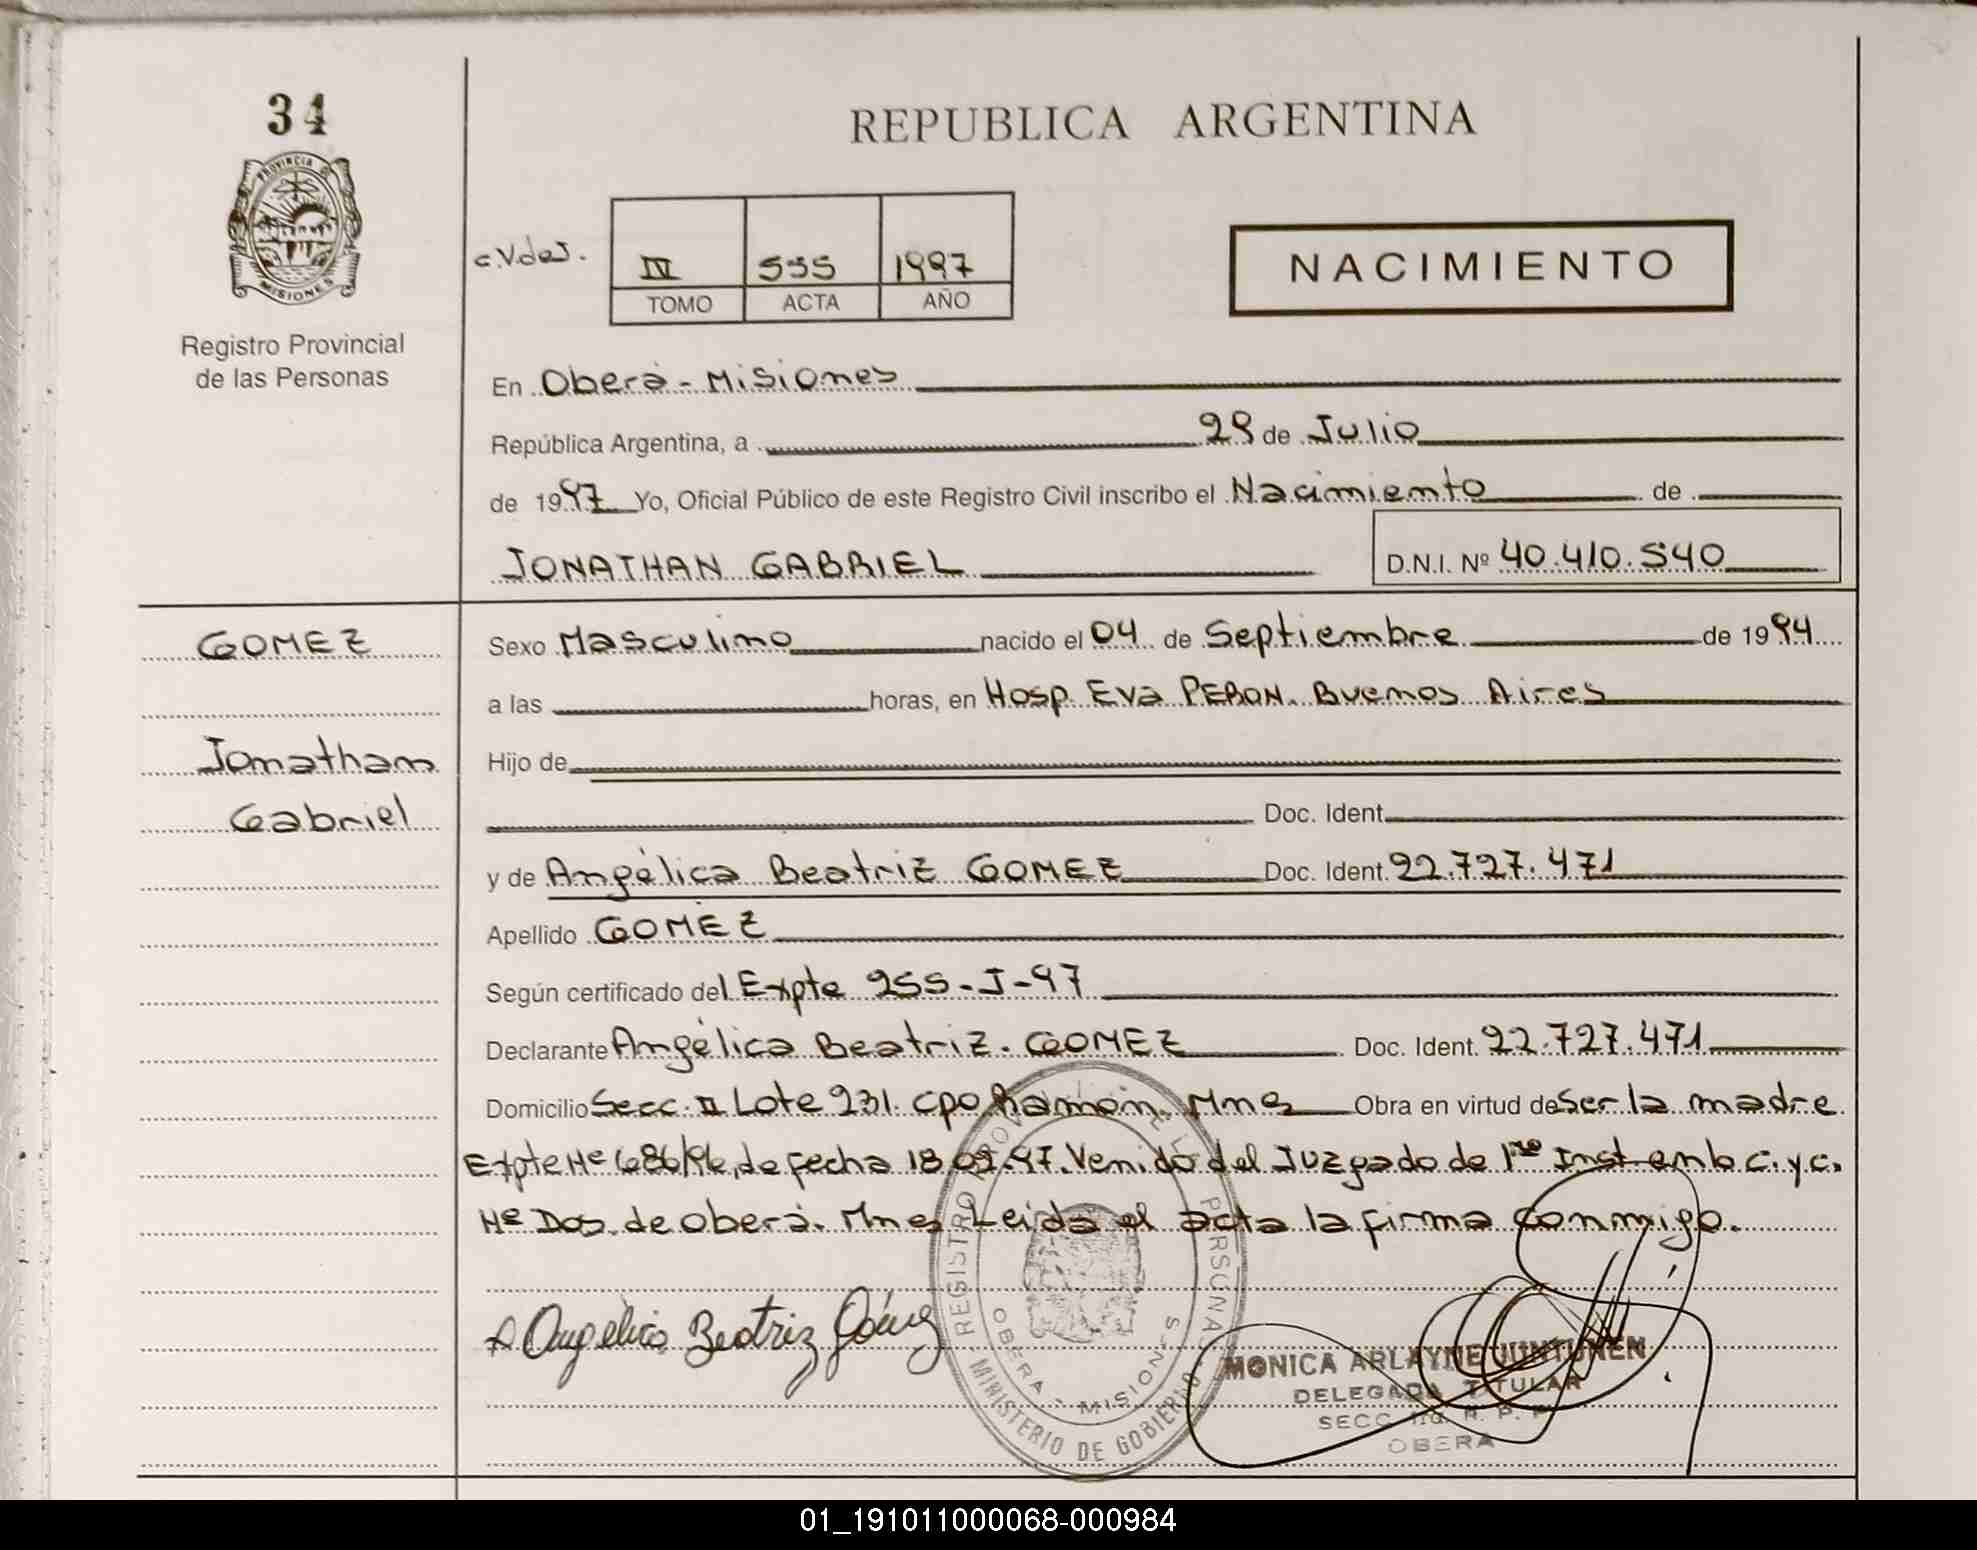 34
PROVINCIA DE
MISIONES
Registro Provincial
de las Personas
REPUBLICA ARGENTINA
IV 555 1997
TOMO ACTA AÑO
NACIMIENTO
En Oberá - Misiones
República Argentina, a 29 de Julio
de 1997 Yo, Oficial Público de este Registro Civil inscribo el Nacimiento de
JONATHAN GABRIEL D.N.I. Nº 40.410.540
GOMEZ
Jonathan
Gabriel
Sexo Masculino nacido el 04 de Septiembre de 1994
a las horas, en Hosp. Eva PERON. Buenos Aires
Hijo de
Doc. Ident.
y de Angélica Beatriz GOMEZ Doc. Ident. 22.727.471
Apellido GOMEZ
Según certificado del Expte 255-J-97
Declarante Angélica Beatriz. GOMEZ Doc. Ident. 22.727.471
Domicilio Secc. II Lote 231. Cpo Ramón. Mnes Obra en virtud de Ser la madre
Expte Nº 686/96, de fecha 18.02.97. Venido del Juzgado de 1ra Inst en lo C. y C.
Nº Dos de Oberá. Mnes Leída el acta la firma conmigo.
Angelica Beatriz Gómez
REGISTRO PROVINCIAL DE LAS PERSONAS
OBERA - MISIONES
MINISTERIO DE GOBIERNO
MONICA ARLAYNE JUNTUNEN
DELEGADA TITULAR
SECC. R. P. P.
OBERA
01_191011000068-000984